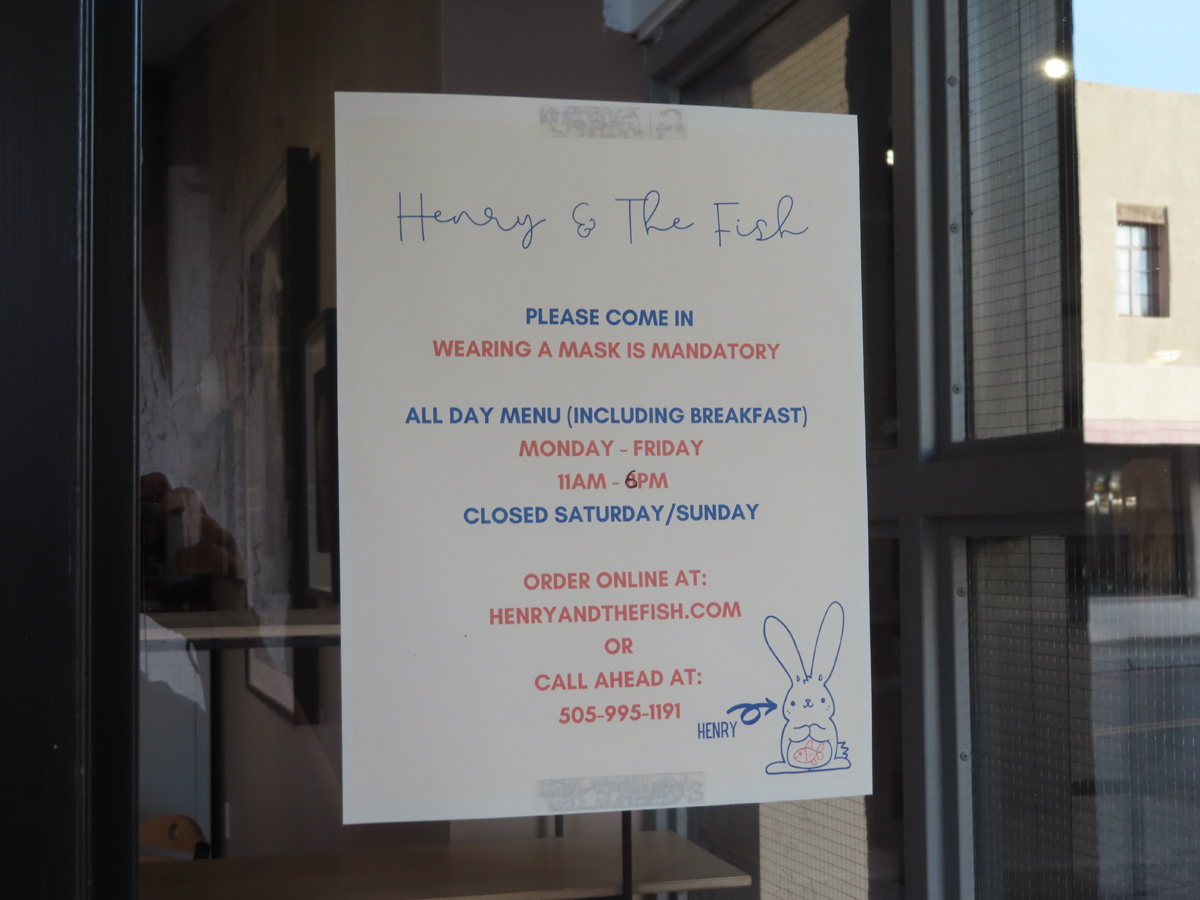 Henry & The Fish
PLEASE COME IN
WEARING A MASK IS MANDATORY
ALL DAY MENU (INCLUDING BREAKFAST)
MONDAY - FRIDAY
11AM - 6PM
CLOSED SATURDAY/SUNDAY
ORDER ONLINE AT:
HENRYANDTHEFISH.COM
OR
CALL AHEAD AT:
505-995-1191
HENRY